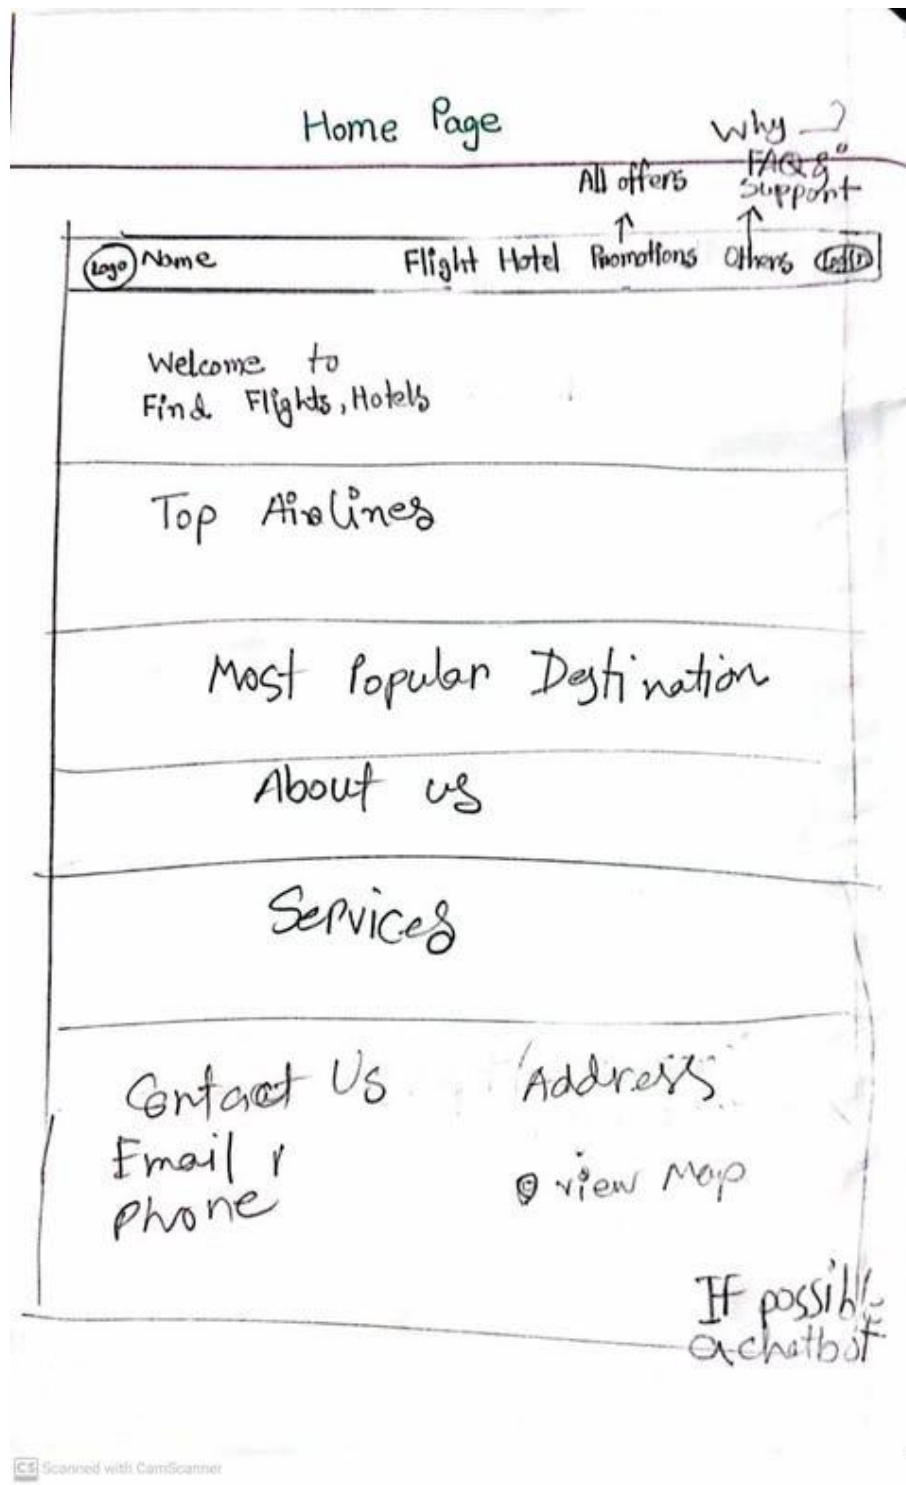 Home Page
Why _?
FAQ &
Support
All offers
Logo Name Flight Hotel Promotions Others
Welcome to
Find Flights, Hotels
Top Airlines
Most Popular Destination
About us
Services
Contact Us Address
Email
Phone
view Map
If possible
a chatbot
CS Scanned with CamScanner